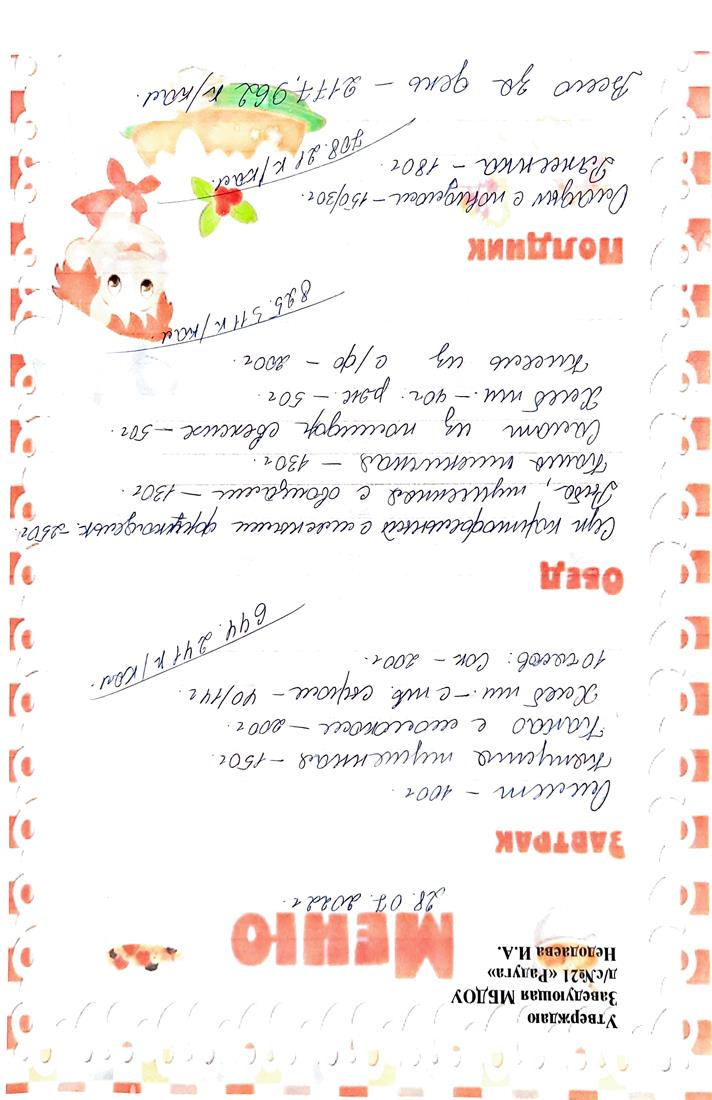 Утверждаю
Заведующая МБДОУ
д/с№21 «Радуга»
Недодаева И.А.
Меню
28.07.2022г.
Завтрак
Омлет – 100г
Капуста тушенная – 150г
Какао с молоком – 200г
Хлеб пш. – с тв. сыром – 40/14г
10 часов: Сок – 200г.
644.241 к/кал.
Обед
Суп картофельный с мясными фрикадельк. – 250г.
Рыба, тушенная с овощами – 130г.
Каша пшеничная – 130г.
Салат из помидор свежих – 50г.
Хлеб пш. – 40г. рж. – 50г.
Кисель из с/ф – 200г.
825.511 к/кал
Полдник
Оладьи с повидлом – 150/30г.
Ряженка – 180г.
708.21 к/кал.
Всего за день – 2177,962 к/кал.